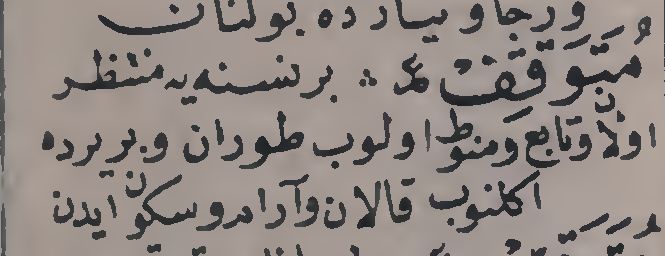 ورجا ونیازده بولنان
مُتَوَقِّفْ ع ؞ برنسنه‌یه منتظر
اولان وتابع ومنوط اولوب طوران وبریرده
اکلنوب قالان وآرام وسکون ایدن